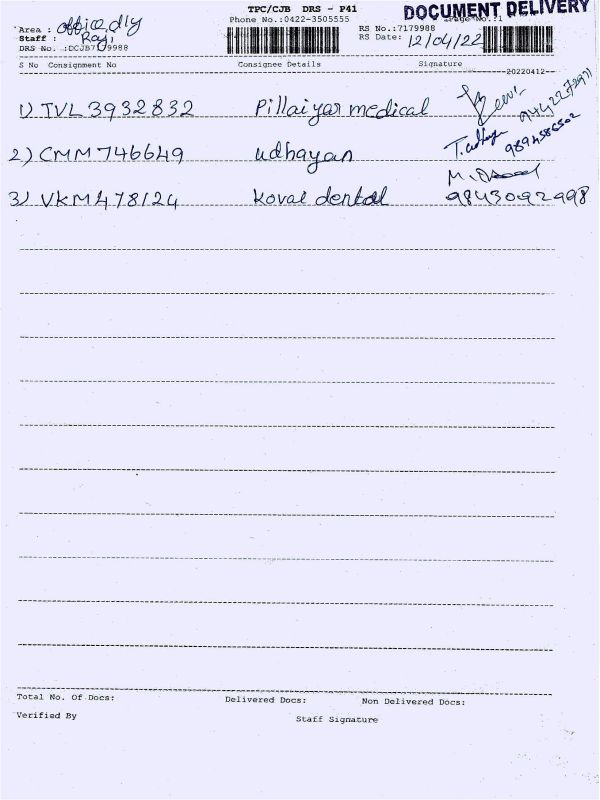 TPC/CJB DRS - P41
DOCUMENT DELIVERY
Phone No.:0422-3505555
Page No.:1
Area : office dly
Staff : Raji
RS No.:7179988
RS Date: 12/04/22
DRS No. :DCJB7179988
S No Consignment No Consignee Details Signature
20220412
1) TVL 3932832 Pillaiyar medical
2) CMM 746649 udhayan T.udhaya 9894586502
3) VKM 478124 Kovai dental 9843092998
Total No. Of Docs: Delivered Docs: Non Delivered Docs:
Verified By Staff Signature